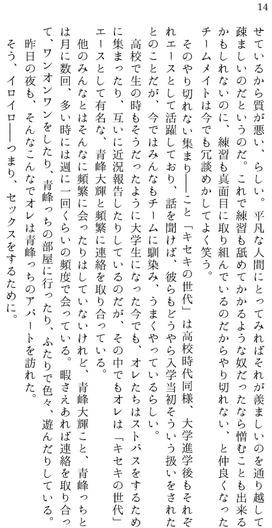 14
せているから質が悪い、らしい。平凡な人間にとってみればそれが羨ましいのを通り越して
疎ましいのだというのだ。これで練習も舐めてかかるような奴だったなら憎むことも出来る
かもしれないのに、練習も真面目に取り組んでいるのだからやり切れない、と仲良くなった
チームメイトは今でも冗談めかしてよく笑う。
そのやり切れない集まり――こと「キセキの世代」は高校時代同様、大学進学後もそれぞ
れエースとして活躍しており、話を聞けば、彼らもどうやら入学当初そういう扱いをされた
とのことだが、今ではみんなもチームに馴染み、うまくやっているらしい。
高校で生の時もそうだったように大学生になった今でも、オレたちはストバスをするため
に集まったり、互いに近況報告したりしているのだが、その中でもオレは「キセキの世代」
エースとして有名な、青峰大輝と頻繁に連絡を取り合っている。
他のみんなとはそんなに頻繁に会ったりはしていないけれど、青峰大輝こと、青峰っちと
は月に数回、多い時には週に一回くらいの頻度で会っている。暇さえあれば連絡を取り合っ
て、ワンオンワンをしたり、青峰っちの部屋に行ったり、ふたりで色々、遊んだりしている。
昨日の夜も、そんなこんなでオレは青峰っちのアパートを訪れた。
そう、イロイロ――つまり、セックスをするために。